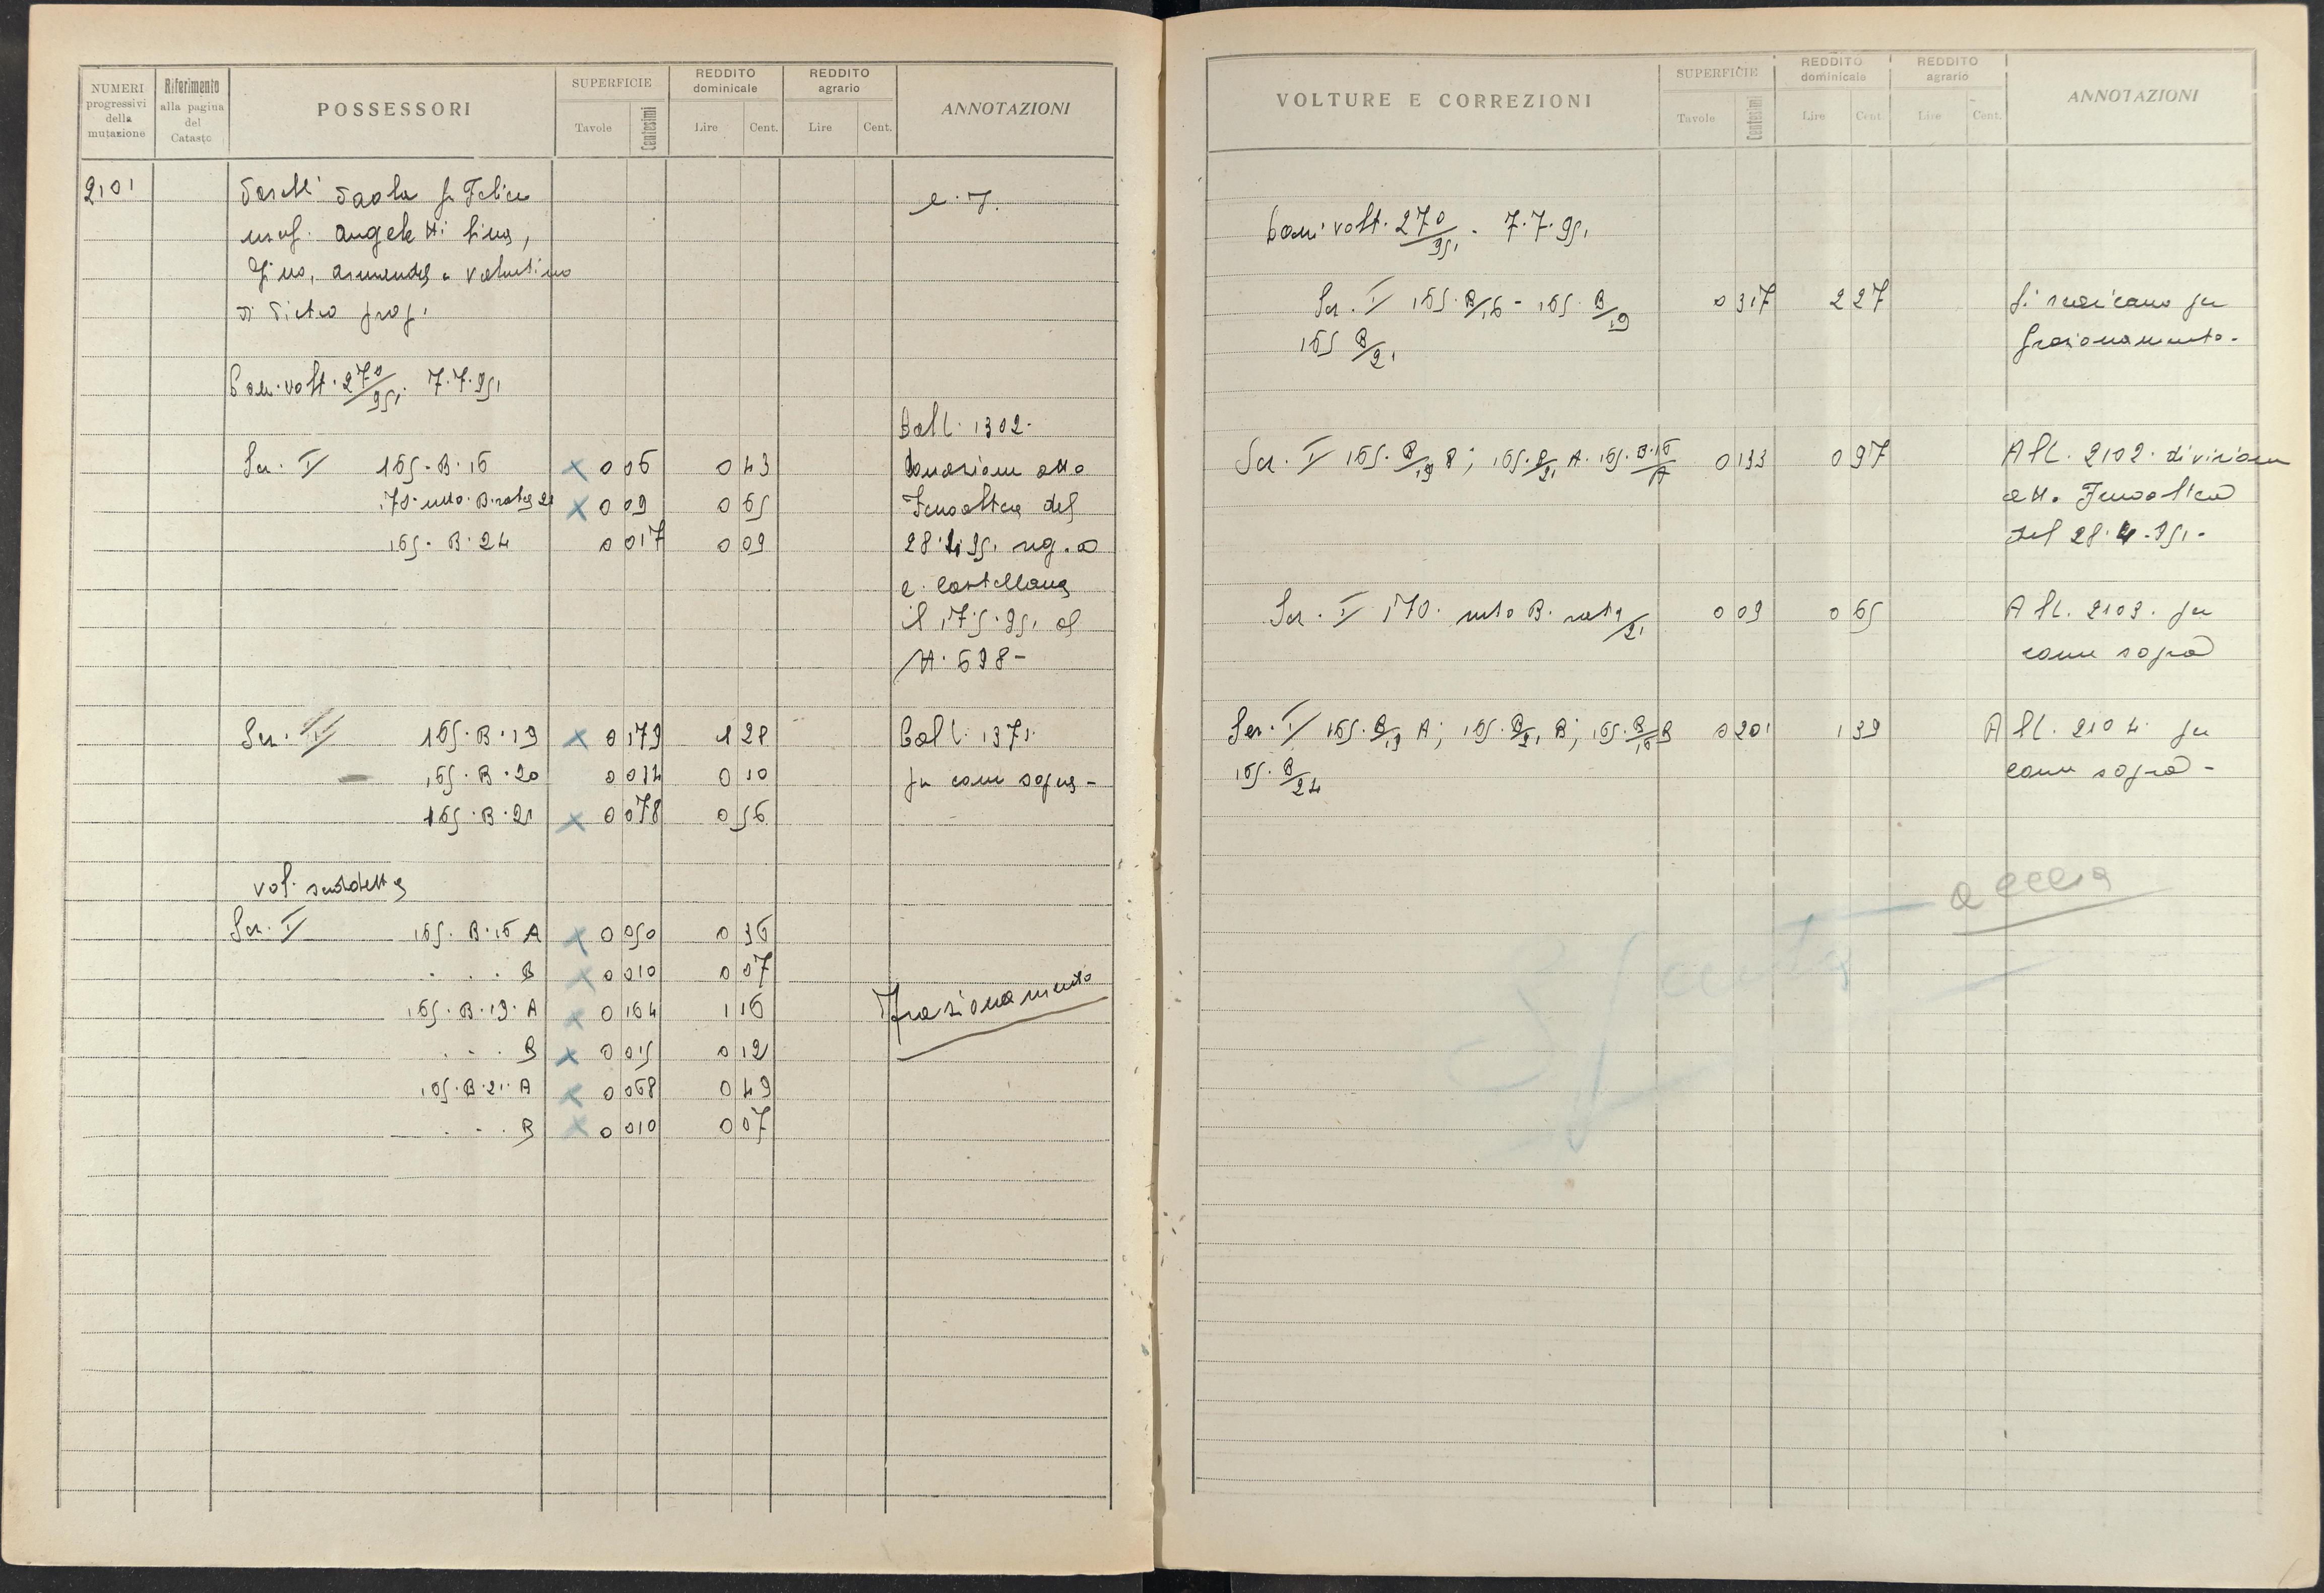 NUMERI progressivi della mutazione
Riferimento alla pagina del Catasto
POSSESSORI
SUPERFICIE
Tavole Centesimi
REDDITO dominicale
Lire Cent.
REDDITO agrario
Lire Cent.
ANNOTAZIONI
2101 Paola fu Felice
usuf. Angeletti
Gino, e Valentino
di Pietro prop.
volt. 270/951. 7.7.951
Sez. I 165.B.16 X 0 06 0 43
170 B. rata 21 X 0 09 0 65
165. B. 24 0 017 0 09
1302.
donazione atto
del
28.4.951 reg. a
C. Castellana
il 17.5.951 al
N. 698-
Sez. I 165.B.19 X 0 179 1 28
165.B.20 0 014 0 10
165.B.21 X 0 078 0 56
1371.
per come sopra-
vol. suddetta
Sez. I 165. B.16 A X 0 050 0 36
. . . B X 0 010 0 07
165.B.19.A X 0 164 1 16
. . . B X 0 015 0 12
165.B.21.A X 0 068 0 49
. . . B X 0 010 0 07
Frazionamento
VOLTURE E CORREZIONI
SUPERFICIE
Tavole Centesimi
REDDITO dominicale
Lire Cent.
REDDITO agrario
Lire Cent.
ANNOTAZIONI
volt. 270/951. 7.7.951
Sez. I 165.B/16 - 165.B/19 0 317 2 27 Si scaricano per
165 B/21 frazionamento.
Sez. I 165.B/19 B; 165.B/21 A. 165.B.16/A 0 133 0 97 All. 2102. divisione
atto
del 28.4.951.
Sez. I 170. B. rata/21 0 09 0 65 All. 2103. per
come sopra
Sez. I 165.B/19 A; 165.B/21 B; 165.B/16 B 0 201 1 39 All. 2104 per
165.B/24 come sopra -